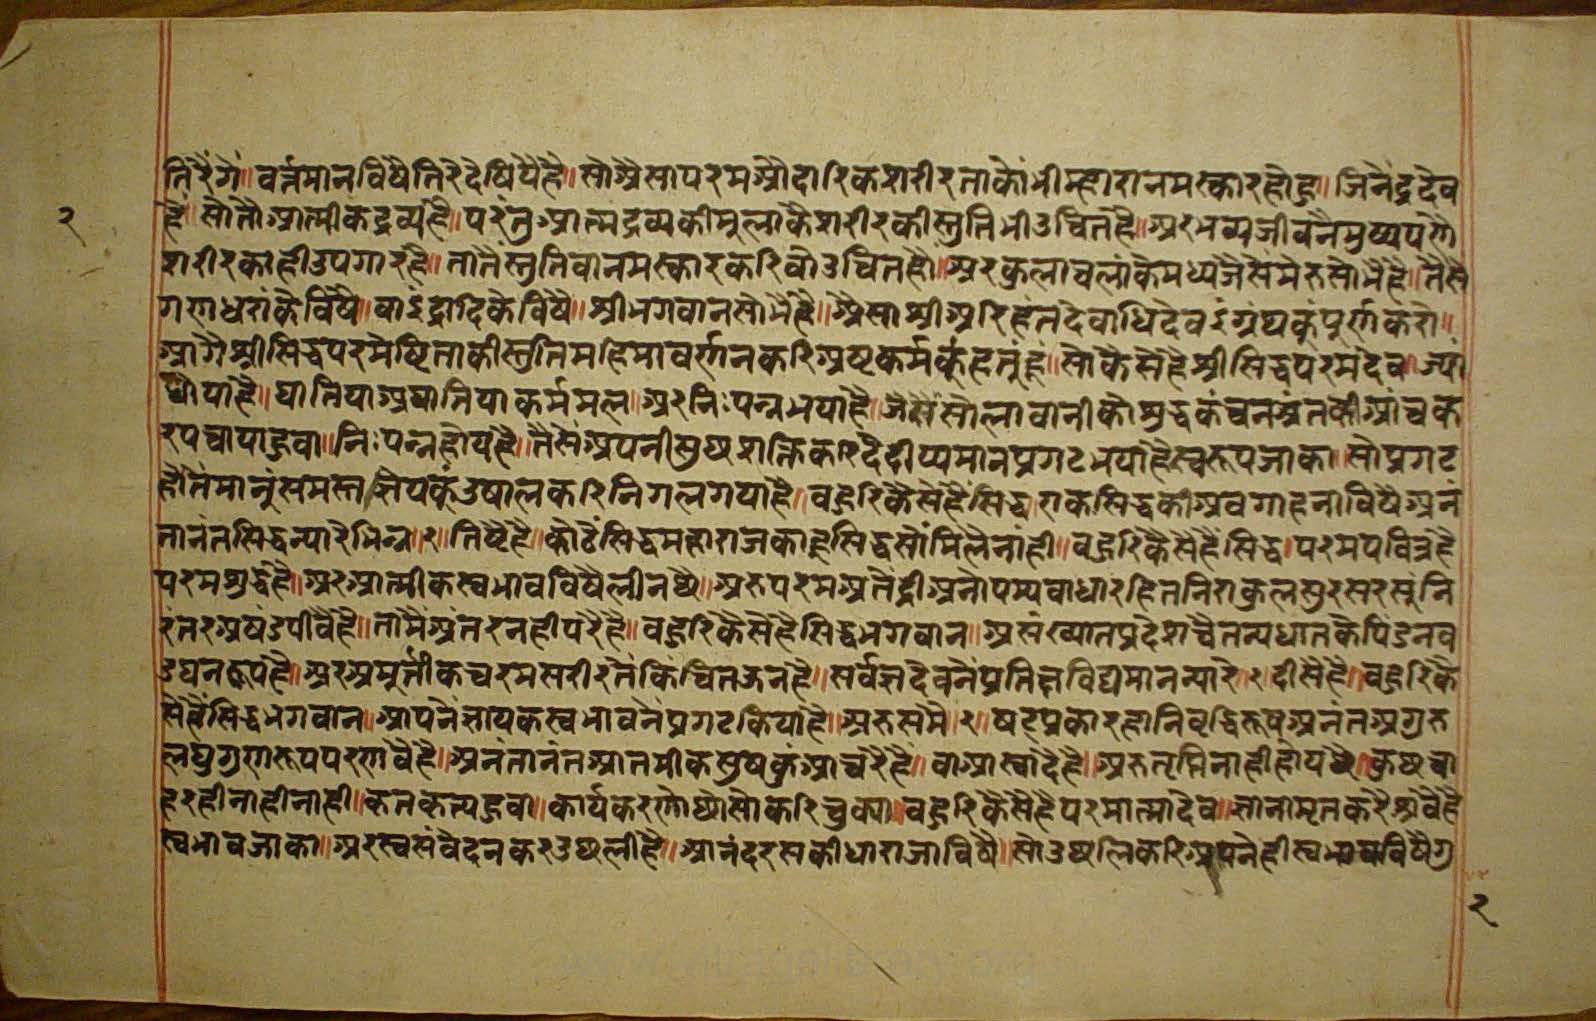 तिरैंगे॥ वर्त्तमानविषैतिरैदेषियैहै॥ सोअैसापरमऔदारिकशरीरताकोंभीम्हारानमस्कारहोहु॥ जिनेंद्रदेव
२
है॥ सोतौआत्मीकद्रव्यहै॥ परंतुआत्मद्रव्यकीमुलाकैशरीरकीस्तुतिभीउचितहै॥ अरभव्यजीवनैमुष्यपणै
शरीरकाहीउपगारहै॥ तातैंस्तुतिवानमस्कारकरिवोउचितहै॥ अरकुलाचलांकेमध्यजैसैंमेरुसोभैहै॥ तैसै
गणधरांकेविषै॥ वाइंद्रादिकेविषै॥ श्रीभगवानसोभैहै॥ अैसाश्रीअरिहंतदेवाधिदेवइंग्रंथकुंपूर्णकरो॥
आगैश्रीसिद्धपरमेष्टिताकीस्तुतिमहिमावर्णनकरिअष्टकर्मकूंहतुंहूं॥ सोकैसेहैश्रीसिद्धपरमदेव॥ ज्यां
धोयाहै॥ घातियाअघातियाकर्ममल॥ अरनिःपन्नभयाहै॥ जैसैंसोलावानीकोशुद्धकंचनअंतकीआंचक
रपचायाहुवा॥ निःपन्नहोयहै॥ तैसैंअपनीसुछशक्तिकरिदैदीप्यमानप्रगटभयाहैस्वरूपजाका॥ सोप्रगट
होतैंमानुंसमस्तज्ञेयकुंउषालकरिनिगलगयाहै॥ बहुरिकैसेहैंसिद्ध॥ एकसिद्धकीअवगाहनाविषैअनं
तानंतसिद्धन्यारेभिन्न॥ २॥ तिष्टैहै॥ कोईसिद्धमहाराजकाहूसिद्धसोंमिलैनांही॥ बहुरिकैसैहैसिद्ध॥ परमपवित्रहै
परमशुद्धहै॥ अरआत्मीकस्वभावविषैलीनछै॥ अरुपरमअतेंद्रीअनोपम्यवाधारहितनिराकुलसुरसरसुंनि
रंतरअषंडपीवैहै॥ तामैंअंतरनहीपरैहै॥ बहुरिकैसैहैसिद्धभगवान॥ असंख्यातप्रदेशचैतन्यधातकेपिंडनव
डघनरूपहै॥ अरअमूर्त्तीकचरमसरीरतैंकिंचितऊनहै॥ सर्वज्ञदेवनैंप्रतिक्षविद्यमानन्यारे॥ २॥ दीसैहै॥ बहुरिकै
सेहैंसिद्धभगवान॥ आपनैज्ञायकस्वभावनैप्रगटकियाहै॥ अरुसमै॥ २॥ षटप्रकारहानिवृद्धिरूपअनंतअगुरु
लघुगुणरूपपरणवैहै॥ अनंतानंतआतमीकसुषकुंआचरैहै॥ वाआस्वादैहै॥ अरुतृप्तिनाहीहोयछै॥ कुछचा
हरहीनाहीनाही॥ कृतकृत्यहुवा॥ कार्यकरणोछोसोकरिचुक्या॥ बहुरिकैसैहैपरमात्मादेव॥ ज्ञानामृतकरैश्रवैहै
स्वभावजाका॥ अरस्वसंवेदनकरउछलीहै॥ आनंदरसकीधाराजाविषै॥ सोउछलिकरिअपनेहीस्वभावविषैग
२